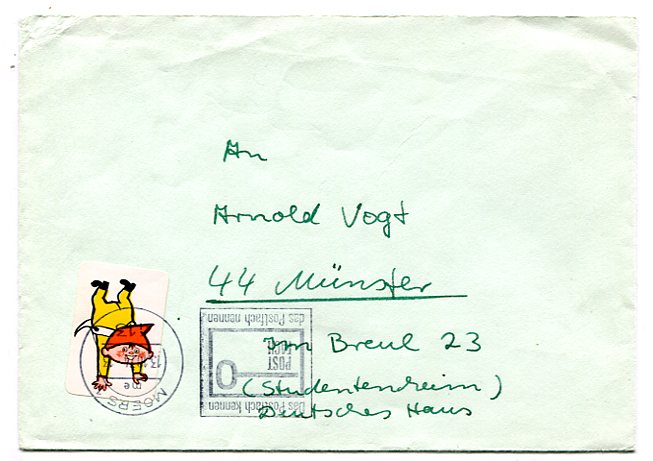 An
Arnold Vogt
44 Münster
Am Breul 23
(Studentenheim)
Deutsches Haus
das Postfach nennen
POST
FACH
Das Postfach kennen
MOERS 1
me